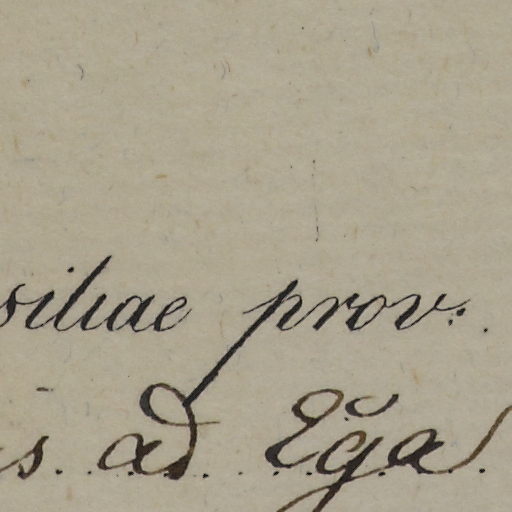 siliae prov.
is. ad Egă